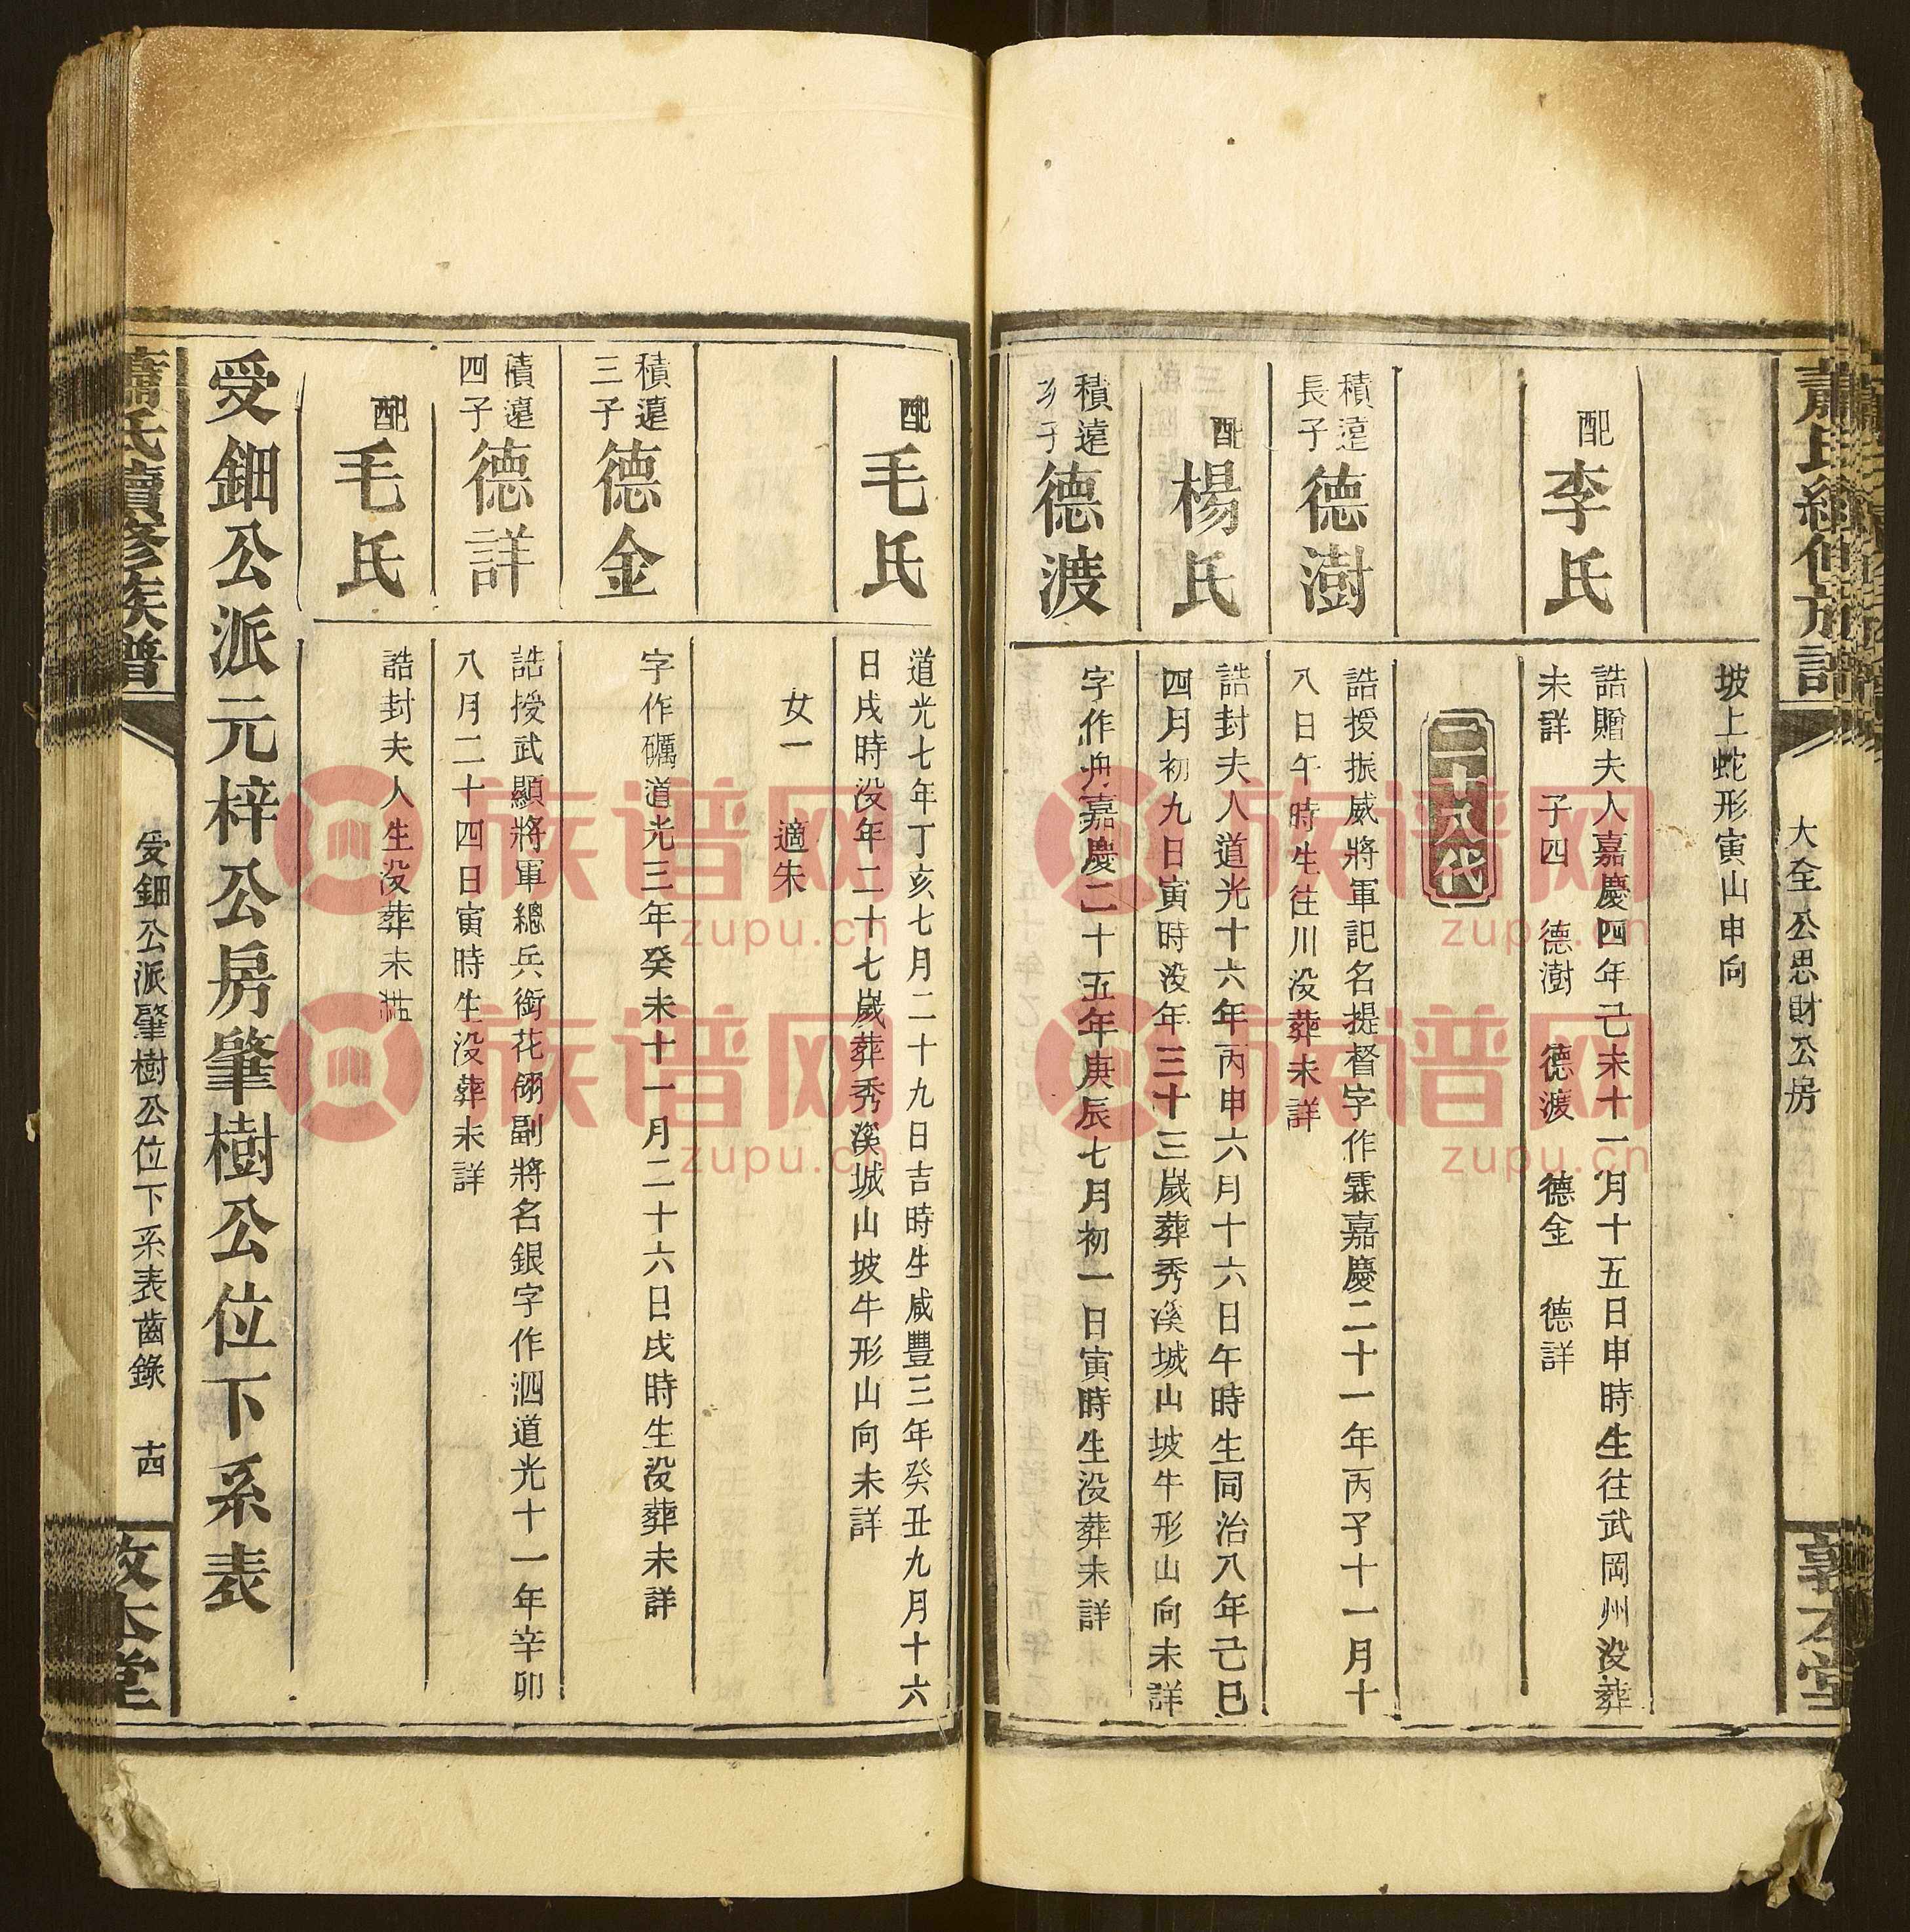 大全公思財公房
坡上蛇形寅山申向
配
李氏
誥贈夫人嘉慶四年己未十一月十五日申時生往武岡州没葬
未詳　子四　德澍　德渡　德金　德詳
二十八代
積遠
長子
德澍
誥授振威將軍記名提督字作霖嘉慶二十一年丙子十一月十
八日午時生往川没葬未詳
配
楊氏
誥封夫人道光十六年丙申六月十六日午時生同治八年己巳
四月初九日寅時没年三十三嵗葬秀溪城山坡牛形山向未詳
積遠
次子
德渡
字作舟嘉慶二十五年庚辰七月初一日寅時生没葬未詳
配
毛氏
道光七年丁亥七月二十九日吉時生咸豐三年癸丑九月十六
日戌時没年二十七嵗葬秀溪城山坡牛形山向未詳
女一　適朱
積遠
三子
德金
字作礪道光三年癸未十一月二十六日戌時生没葬未詳
積遠
四子
德詳
誥授武顯將軍總兵銜花翎副將名銀字作泗道光十一年辛卯
八月二十四日寅時生没葬未詳
配
毛氏
誥封夫人生没葬未詳
受鈿公派元梓公房肇樹公位下系表
蕭氏續修族譜
受鈿公派肇樹公位下系表齒錄　十四
敦本堂
族谱网
zupu.cn
族谱网
zupu.cn
族谱网
zupu.cn
族谱网
zupu.cn